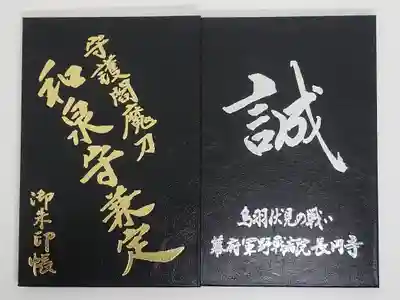 守護閻魔刀
和泉守兼定
御朱印帳
誠
鳥羽伏見の戦い
幕府軍野戦病院長円寺